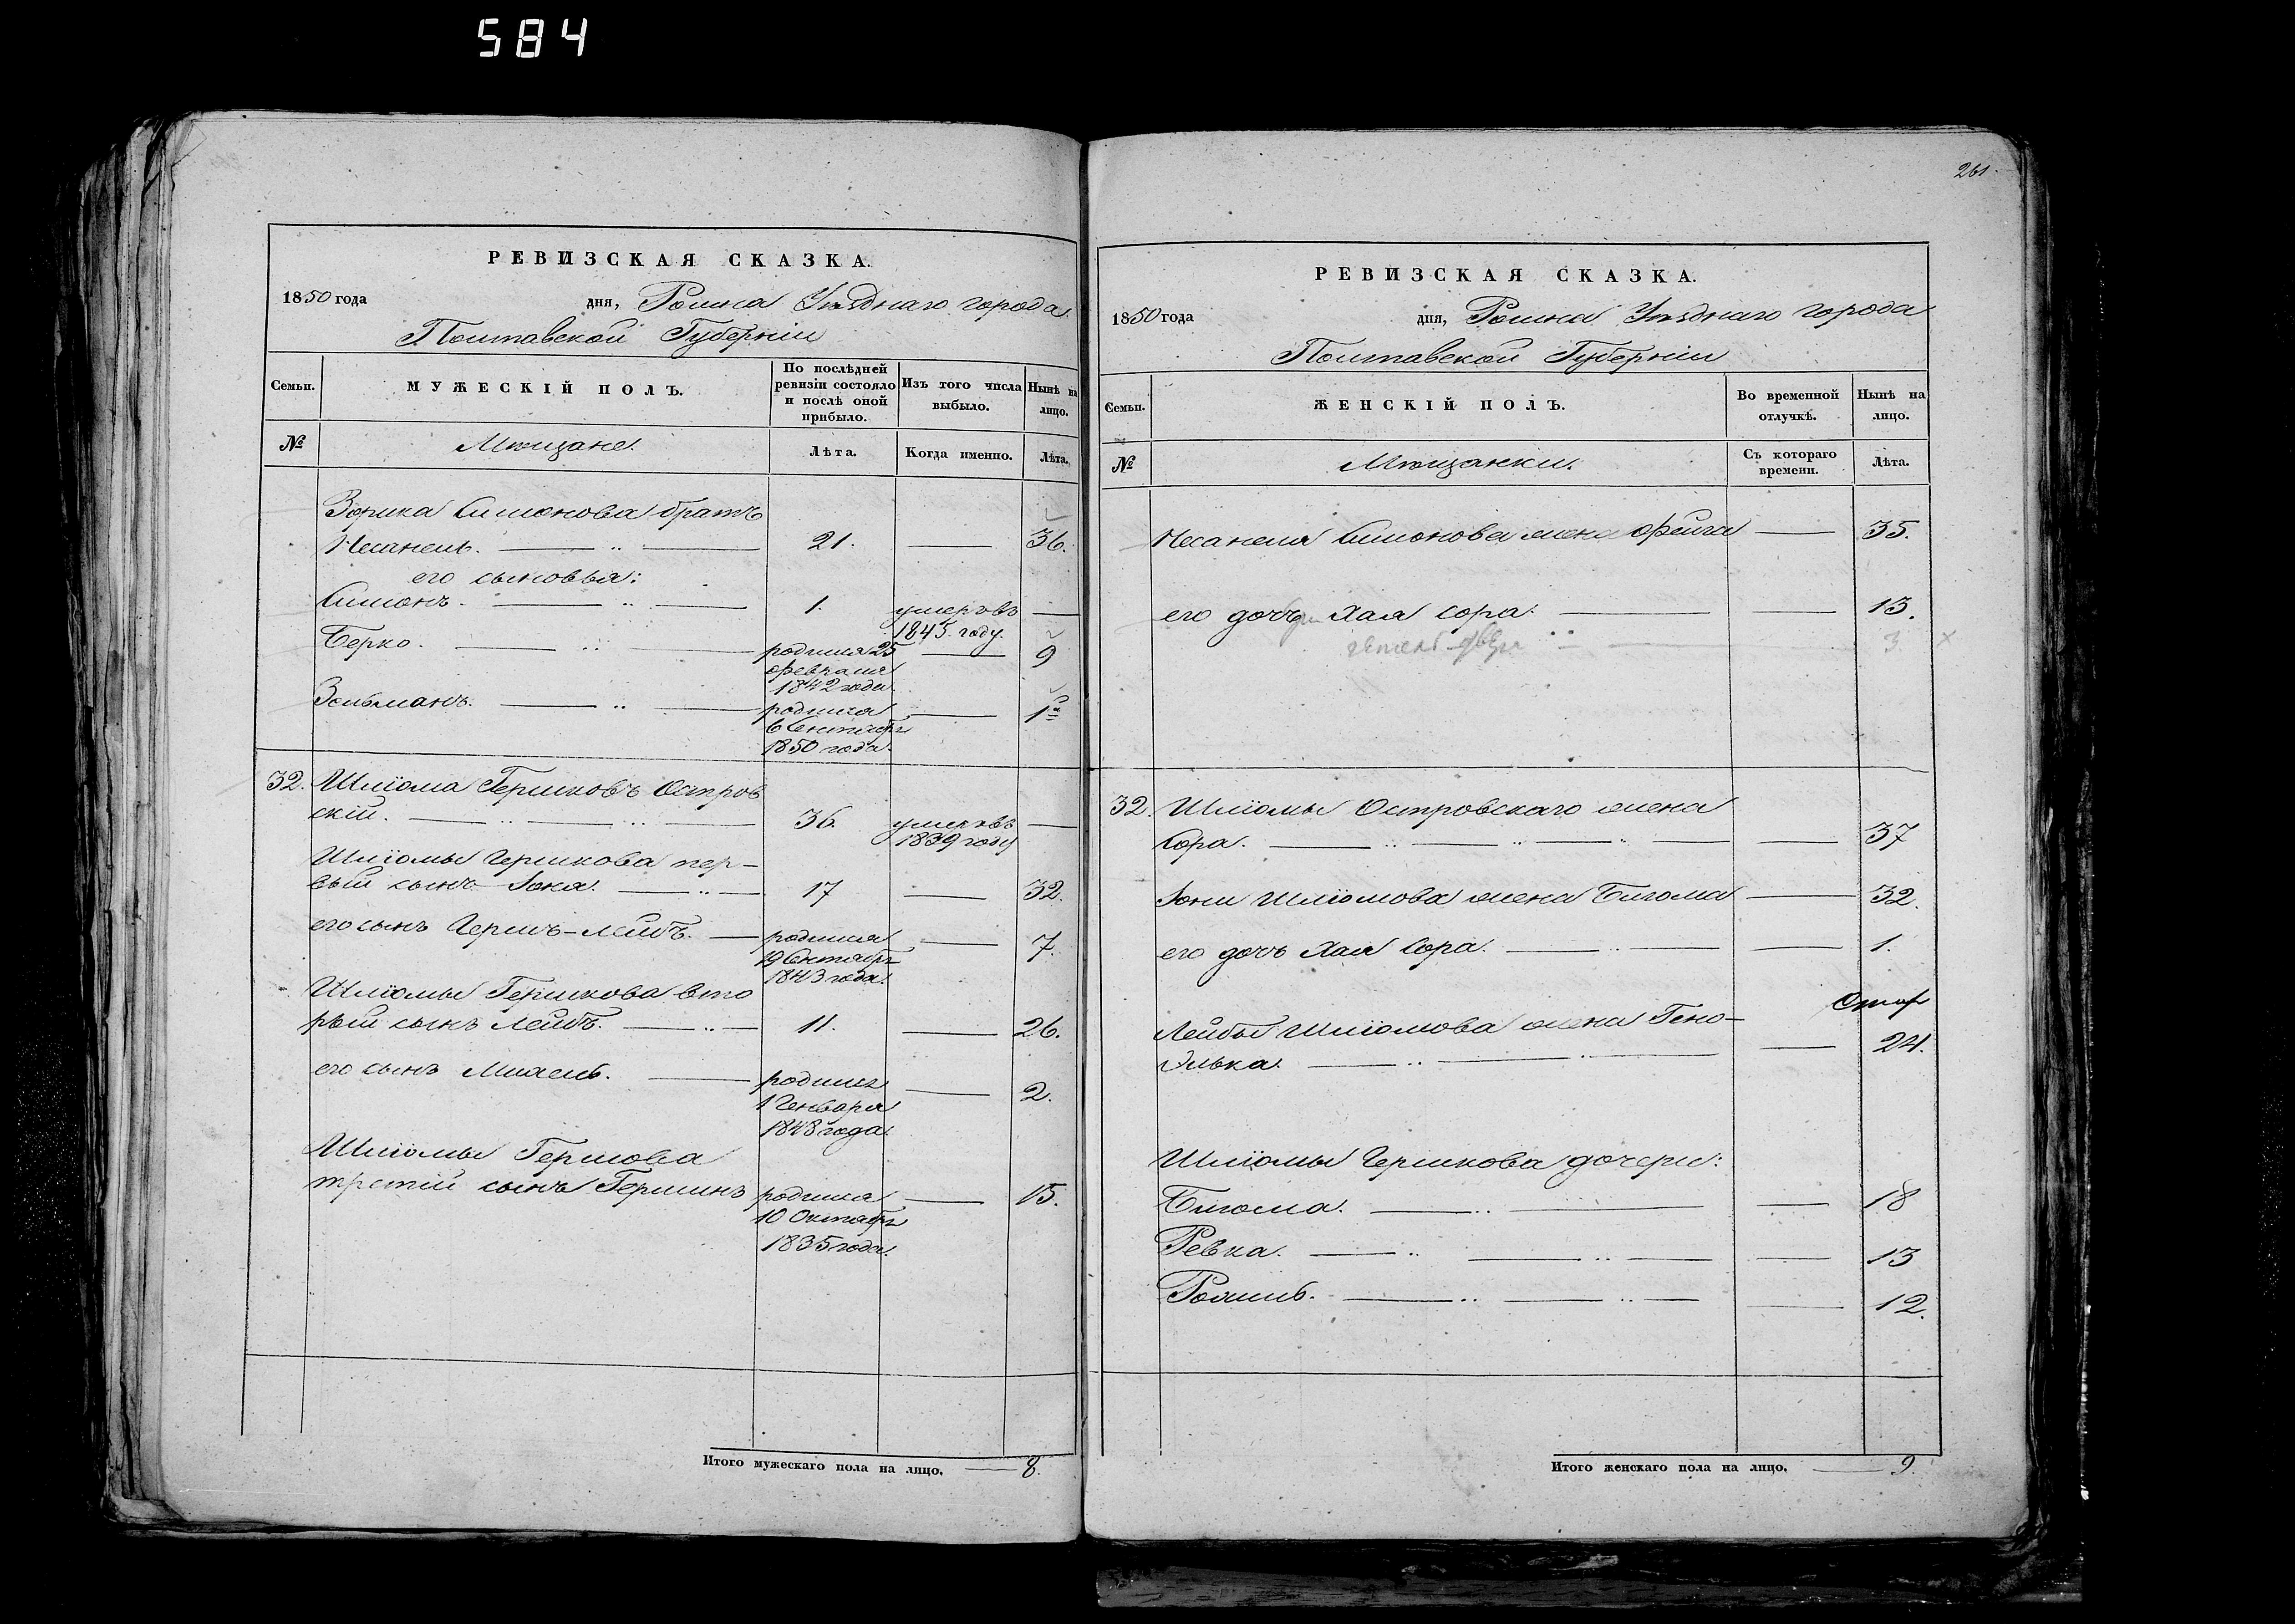 584
РЕВИЗСКАЯ СКАЗКА.
1850 года дня, Ромна Уѣзднаго города
Полтавской Губерніи
Семьи.
МУЖЕСКІЙ ПОЛЪ.
По послѣдней ревизіи состояло и послѣ оной прибыло.
Изъ того числа выбыло.
Нынѣ на лицо.
№
Мѣщане.
Лѣта.
Когда именно.
Лѣта.
Зорика Симонова братъ
Несанель. 21. 36.
его сыновья:
Симонъ. 1. умеръ въ
1845. году.
Берко. родился 25 9
февраля
1842 года.
Зельманъ. родился 1
6 Сентября
1850 года.
32. Шліома Гершковъ Остров
скій. 36. умеръ въ
1839 году
Шліомы Гершкова пер-
вый сынъ Іона. 17 32.
его сынъ Гершъ-Лейбъ. родился 7.
19 Сентября
1843 года.
Шліомы Гершкова вто
рый сынъ Лейбъ. 11. 26.
его сынъ Михель. родился 2.
1 Генваря
1848 года.
Шліомы Гершова
третій сынъ Гершинъ родился 15.
10 Октября
1835 года.
Итого мужескаго пола на лицо. 8.
261.
РЕВИЗСКАЯ СКАЗКА.
1850 года дня, Ромна Уѣзднаго города
Полтавской Губерніи
Семьи.
ЖЕНСКІЙ ПОЛЪ.
Во временной отлучкѣ.
Нынѣ на лицо.
№
Мѣщанки.
Съ котораго времени.
Лѣта.
Несанеля Симонова жена Фейга 35.
его дочь Хая Сора. 13.
3
32. Шліомы Островскаго жена
Сора. 37
Іоны Шліомова жена Бигома 32.
его дочь Хая Сора. 1.
Лейбы Шліомова жена Гено-
дилька. 24.
Шліомы Гершкова дочери:
Бигома. 18
Ревка. 13
Рохиль. 12.
Итого женскаго пола на лицо. 9.